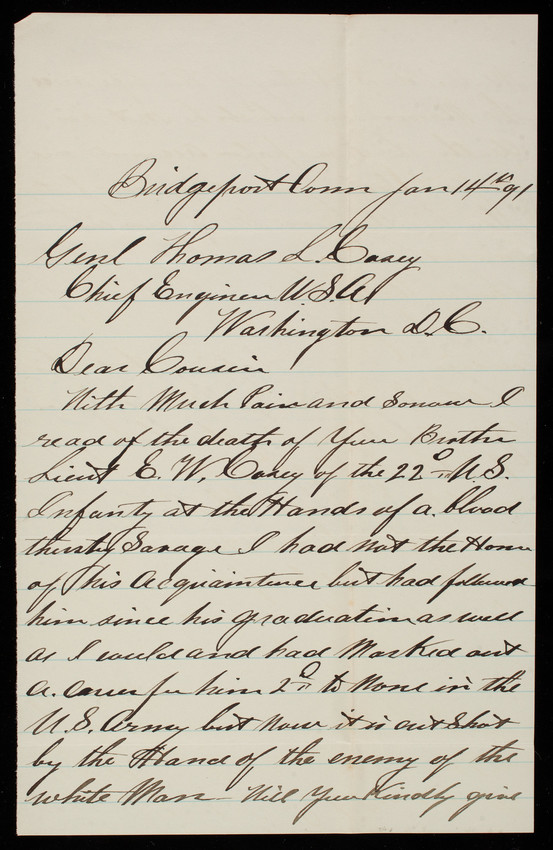 Bridgeport Conn Jan 14th 91
Genl Thomas L. Casey
Chief Engineer U.S.A.
Washington D.C.
Dear Cousin
With Much Pain and Sorrow I
read of the death of Your Brother
Lieut E. W. Casey of the 22d U.S.
Infanty at the Hands of a. blood
thirsty Savage I had not the Honor
of his acquaintence but had followed
him since his graduation as well
as I could and had Marked out
a. carer for him 2d to None in the
U.S. Army but now it is cut Shot
by the Hand of the enemy of the
white Man Will You Kindly give